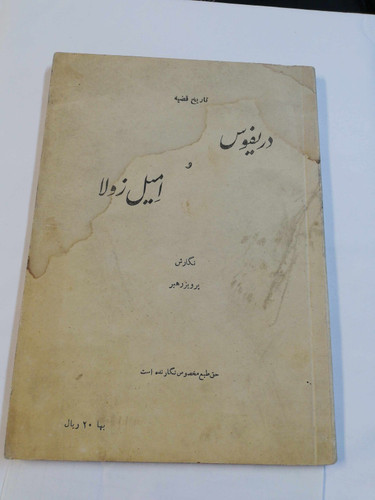 تاریخ قضیه
دریفوس
و
امیل زولا
نگارش
پرویز رهبر
حق طبع مخصوص نگارنده است
بها ۲۰ ریال